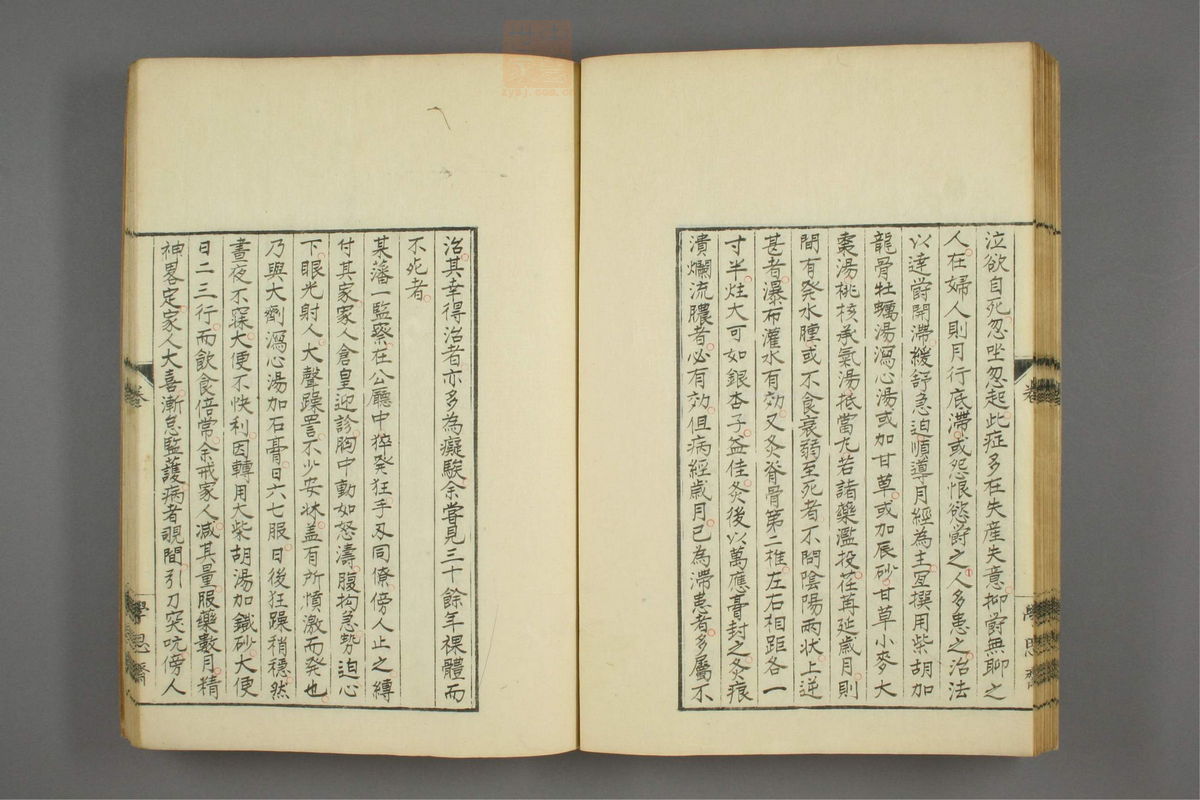 泣欲自死忽坐忽起此症多在失産失意抑欝無聊之
人在婦人則月行底滯或怨恨慾欝之人多患之治法
以達欝開滯緩舒急迫順導月經為主冝撰用柴胡加
龍骨牡蠣湯瀉心湯或加甘草或加辰砂甘草小麥大
棗湯桃核承氣湯抵當尤若諸藥濫投荏苒延歲月則
間有発水腫或不食衰弱至死者不問陰陽兩狀上逆
甚者瀑布灌水有効又灸脊骨第二椎左右相距各一
寸半炷大可如銀杏子益佳灸後以萬應膏封之灸痕
潰爛流膿者必有効但病經歲月已為滯患者多屬不
治其幸得治者亦多為癡騃余嘗見三十餘年裸體而
不死者
某藩一監察在公廳中猝発狂手刄同僚傍人止之縛
付其家家人倉皇迎診胸中動如怒濤腹拘急勢迫心
下眼光射人大聲躁詈不少安狀盖有所憤激而発也
乃與大劑瀉心湯加石膏日六七服日後狂躁稍穩然
晝夜不寐大便不快利因轉用大柴胡湯加鐵砂大便
日二三行而飲食倍常余戒家人减其量服藥數月精
神畧定家人大喜漸怠監護病者覗間引刀突吭傍人
卷
學思齋